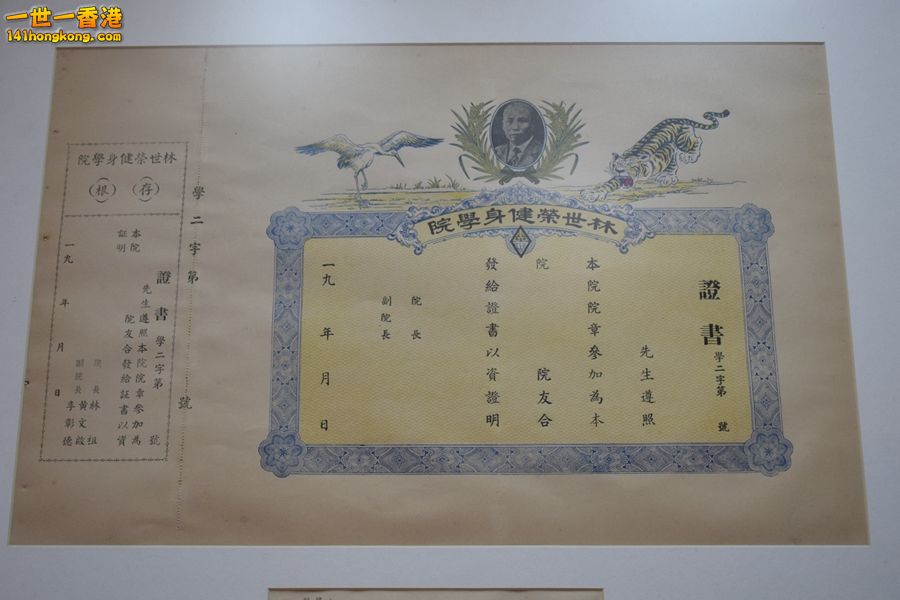 一世一香港
141hongkong.com
林世榮健身學院
證書 學二字第 號
先生遵照
本院院章參加為本
院 院友合
發給證書以資證明
院長
副院長
一九 年 月 日
學二字第 號
林世榮健身學院
(存) (根)
證書 學二字第 號
先生遵照本院院章參加為
本院 院友合發給証書以資
証明
院長林 祖
副院長黃文啟
李彰德
一九 年 月 日